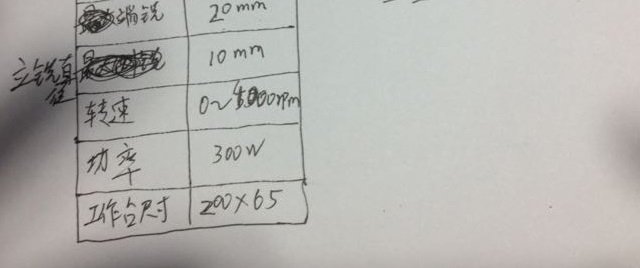 端铣 20mm
立铣直径 10mm
转速 0~1000rpm
功率 300W
工作台尺寸 200×65